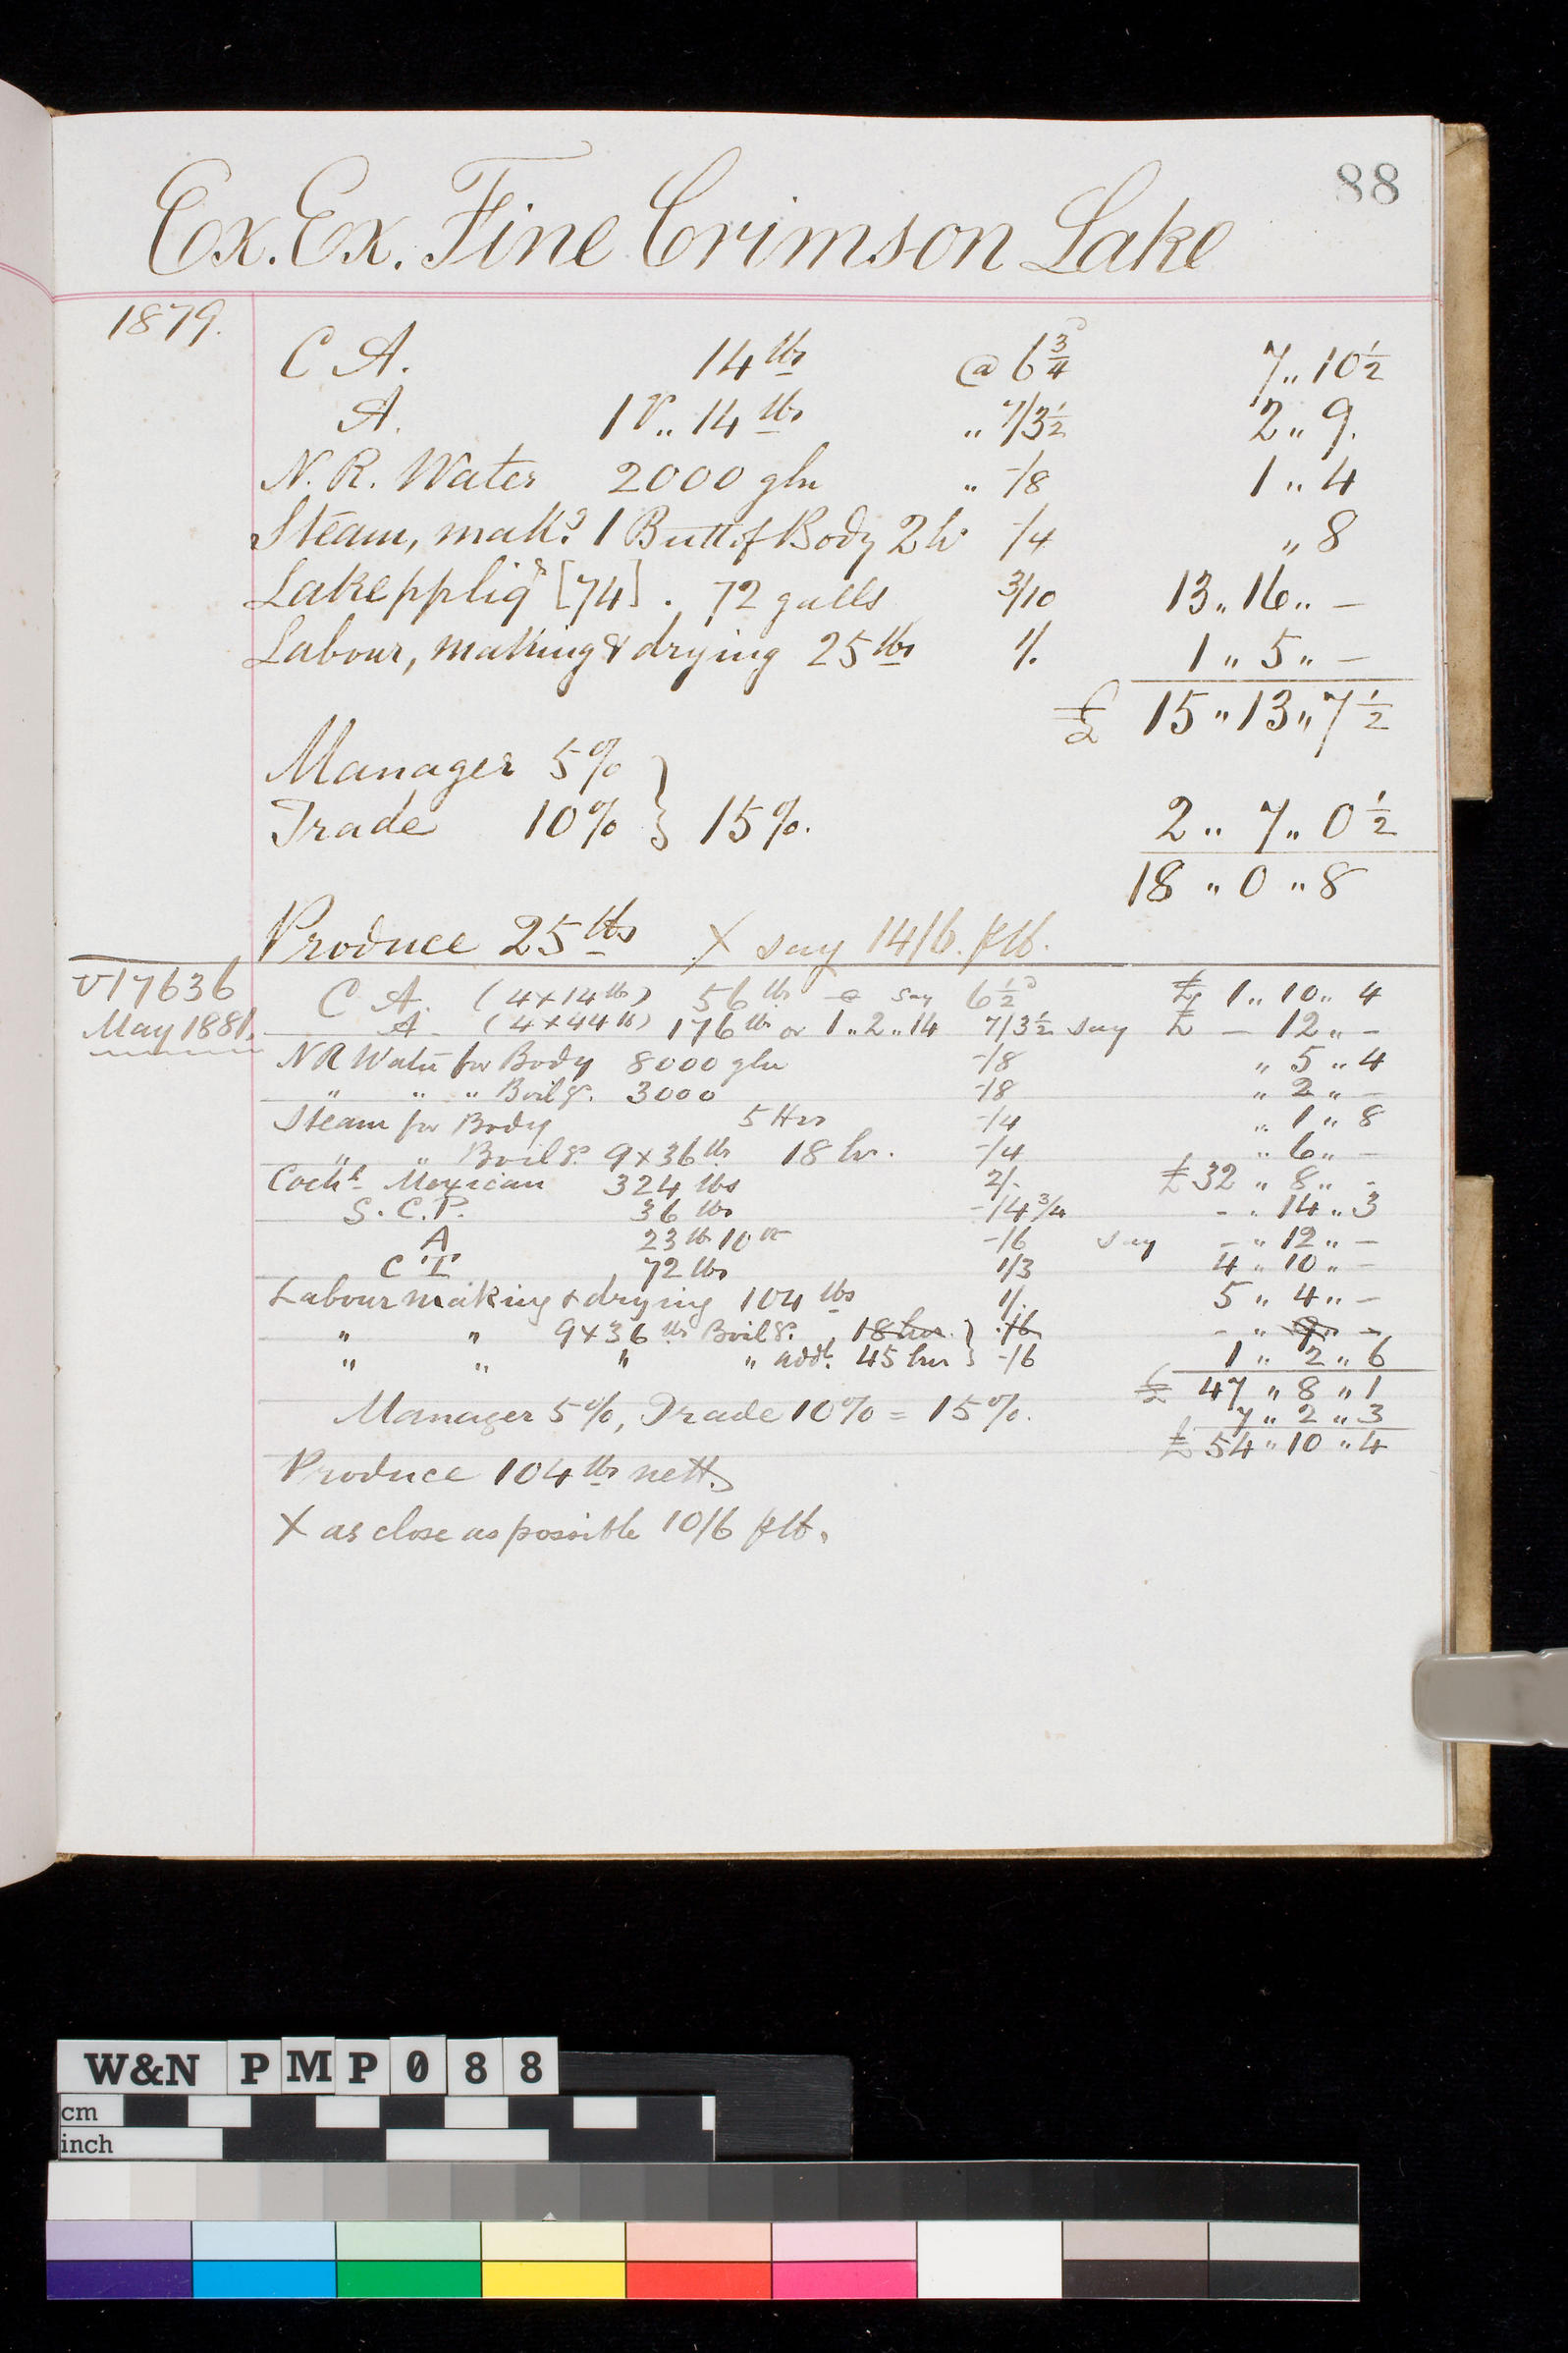 88
Ex. Ex. Fine Crimson Lake
1879.
C A. 14 lbs @ 6 3/4 d 7 „ 10 1/2
A. 1 qr „ 14 lbs „ 7/3 1/2 2 „ 9.
N. R. Water 2000 gln „ -/8 1 „ 4
Steam, makg 1 Butt of Body 2 hr -/4 „ 8
Lake pp liqr [74]. 72 galls 3/10 13 „ 16 „ –
Labour, making & drying 25 lbs 1/. 1 „ 5 „ –
£ 15 „ 13 „ 7 1/2
Manager 5%
Trade 10% } 15%. 2 „ 7 „ 0 1/2
18 „ 0 „ 8
Produce 25 lbs X say 14/6. p lb.
17636
May 1881.
C A. (4x14 lb) 56 lbs @ say 6 1/2 d £ 1 „ 10 „ 4
A (4x44 lb) 176 lbs or 1 „ 2 „ 14 7/3 1/2 say £ – 12 „ –
N R Water for Body 8000 gln -/8 „ 5 „ 4
„ „ „ Boilg. 3000 -/8 „ 2 „ –
Steam for Body 5 Hrs -/4 „ 1 „ 8
„ „ Boilg. 9x36 lbs 18 hr. -/4 „ 6 „ –
Cochl Mexican 324 lbs 2/. £ 32 „ 8 „ –
S. C. P. 36 lbs -/4 3/4 – „ 14 „ 3
A 23 lb 10 oz -/6 say – „ 12 „ –
C T 72 lbs 1/3 4 „ 10 „ –
Labour making & drying 104 lbs 1/. 5 „ 4 „ –
„ „ 9x36 lbs Boilg. 18 hrs. } -/6 – „ 9 „ –
„ „ „ „ addl. 45 hrs } -/6 1 „ 2 „ 6
£ 47 „ 8 „ 1
Manager 5%, Trade 10% = 15%. 7 „ 2 „ 3
£ 54 „ 10 „ 4
Produce 104 lbs nett.
X as close as possible 10/6 p lb.
W&N PMP088
cm
inch